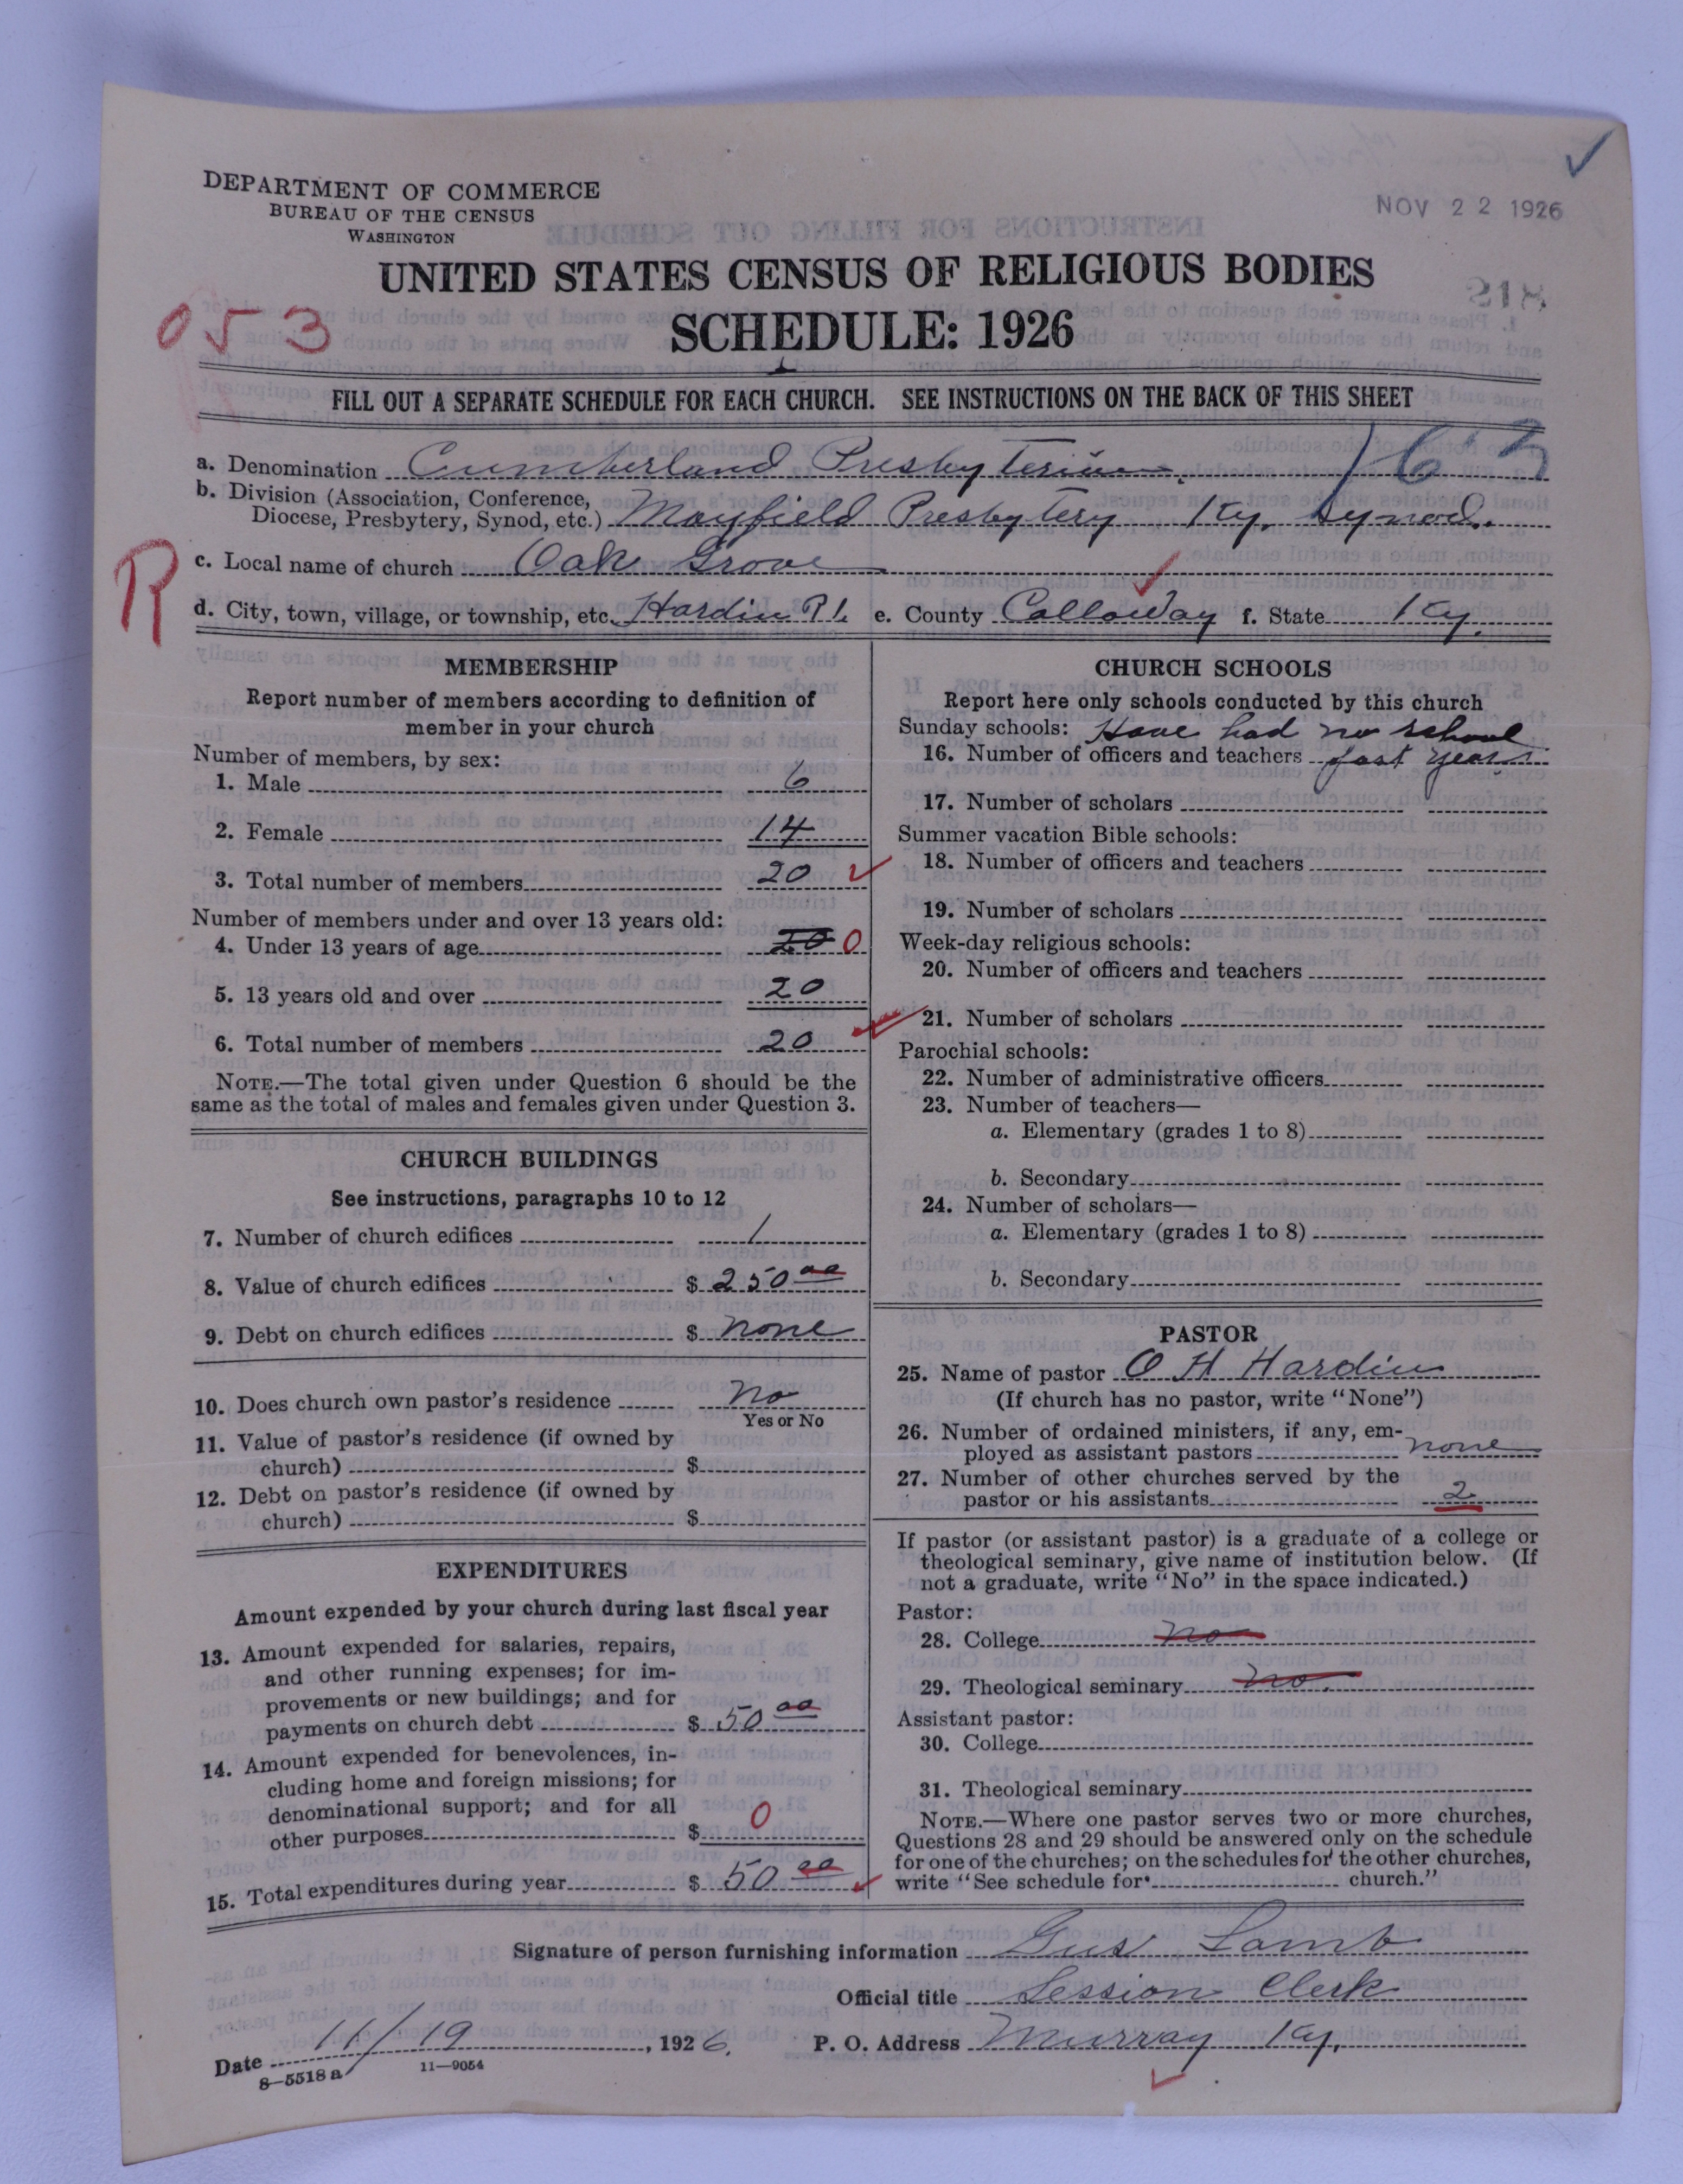 DEPARTMENT OF COMMERCE
BUREAU OF THE CENSUS
WASHINGTON
NOV 22 1926
UNITED STATES CENSUS OF RELIGIOUS BODIES
SCHEDULE: 1926
053
FILL OUT A SEPARATE SCHEDULE FOR EACH CHURCH. SEE INSTRUCTIONS ON THE BACK OF THIS SHEET
a. Denomination Cumberland Presbyterian.
b. Division (Association, Conference,
Diocese, Presbytery, Synod, etc.) Mayfield Presbytery Ky. Synod.
R
c. Local name of church Oak Grove
d. City, town, village, or township, etc. Hardin R 1. e. County Calloway f. State Ky.
MEMBERSHIP
Report number of members according to definition of
member in your church
Number of members, by sex:
1. Male 6
2. Female 14
3. Total number of members 20
Number of members under and over 13 years old:
4. Under 13 years of age 20 0
5. 13 years old and over 20
6. Total number of members 20
NOTE.—The total given under Question 6 should be the
same as the total of males and females given under Question 3.
CHURCH BUILDINGS
See instructions, paragraphs 10 to 12
7. Number of church edifices 1
8. Value of church edifices $ 250 00
9. Debt on church edifices $ none
10. Does church own pastor's residence no
Yes or No
11. Value of pastor's residence (if owned by
church) $
12. Debt on pastor's residence (if owned by
church) $
EXPENDITURES
Amount expended by your church during last fiscal year
13. Amount expended for salaries, repairs,
and other running expenses; for im-
provements or new buildings; and for
payments on church debt $ 50 00
14. Amount expended for benevolences, in-
cluding home and foreign missions; for
denominational support; and for all
other purposes $ 0
15. Total expenditures during year $ 50 00
CHURCH SCHOOLS
Report here only schools conducted by this church
Sunday schools: Have had no school
16. Number of officers and teachers past year.
17. Number of scholars
Summer vacation Bible schools:
18. Number of officers and teachers
19. Number of scholars
Week-day religious schools:
20. Number of officers and teachers
21. Number of scholars
Parochial schools:
22. Number of administrative officers
23. Number of teachers—
a. Elementary (grades 1 to 8)
b. Secondary
24. Number of scholars—
a. Elementary (grades 1 to 8)
b. Secondary
PASTOR
25. Name of pastor O H Hardin
(If church has no pastor, write "None")
26. Number of ordained ministers, if any, em-
ployed as assistant pastors none
27. Number of other churches served by the
pastor or his assistants 2
If pastor (or assistant pastor) is a graduate of a college or
theological seminary, give name of institution below. (If
not a graduate, write "No" in the space indicated.)
Pastor:
28. College no
29. Theological seminary no.
Assistant pastor:
30. College
31. Theological seminary
NOTE.—Where one pastor serves two or more churches,
Questions 28 and 29 should be answered only on the schedule
for one of the churches; on the schedules for the other churches,
write "See schedule for church."
Signature of person furnishing information Gus Lamb
Official title Session Clerk
Date 11/19, 1926. P. O. Address Murray Ky.
8—5518 a 11—9054